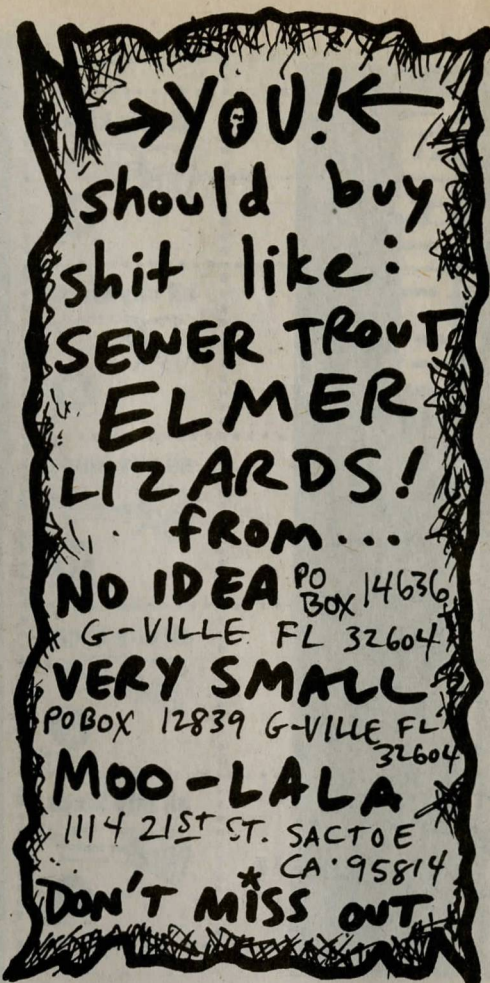 →YOU!←
should buy
shit like:
SEWER TROUT
ELMER
LIZARDS!
from...
NO IDEA PO BOX 14636
G-VILLE FL 32604
VERY SMALL
PO BOX 12839 G-VILLE FL
32604
MOO-LALA
1114 21ST ST. SACTOE
CA. 95814
DON'T MISS OUT